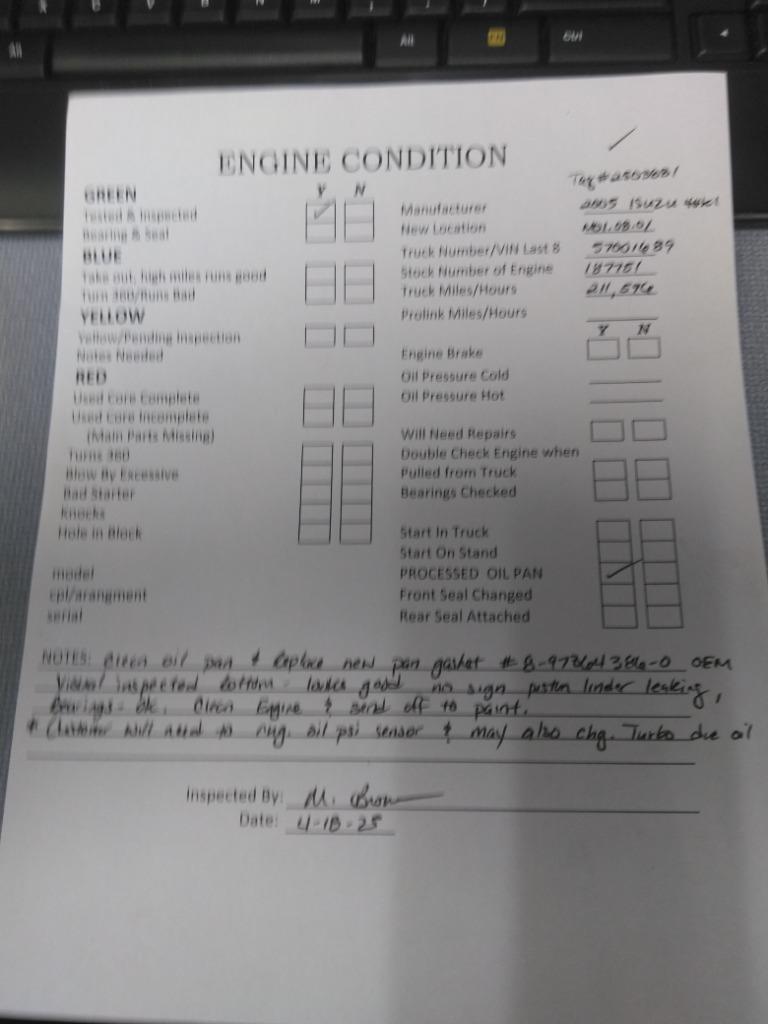 Alt
Alt
Ctrl
ENGINE CONDITION
Tag #
GREEN Y N
Tested & Inspected
Bearing & Seal
BLUE
Take out, high miles runs good
Turn 360/Runs Bad
YELLOW
Yellow/Pending Inspection
Notes Needed
RED
Used Core Complete
Used Core Incomplete
(Main Parts Missing)
Turns 360
Blow By Excessive
Bad Starter
Knocks
Hole in Block
model
cpl/arangment
serial
Manufacturer 2005 ISUZU
New Location
Truck Number/VIN Last 8 57001689
Stock Number of Engine 187751
Truck Miles/Hours 211,596
Prolink Miles/Hours
Y N
Engine Brake
Oil Pressure Cold
Oil Pressure Hot
Will Need Repairs
Double Check Engine when
Pulled from Truck
Bearings Checked
Start In Truck
Start On Stand
PROCESSED OIL PAN
Front Seal Changed
Rear Seal Attached
NOTES: Clean oil pan & Replace new pan gasket # 8-97364386-0 OEM
Visual inspected bottom - looks good no sign piston linder leaking,
Bearings - ok. Clean Engine & send off to paint.
* Customer will need to chg. oil psi sensor & may also chg. Turbo due oil
Inspected By: M. Brown
Date: 4-18-25